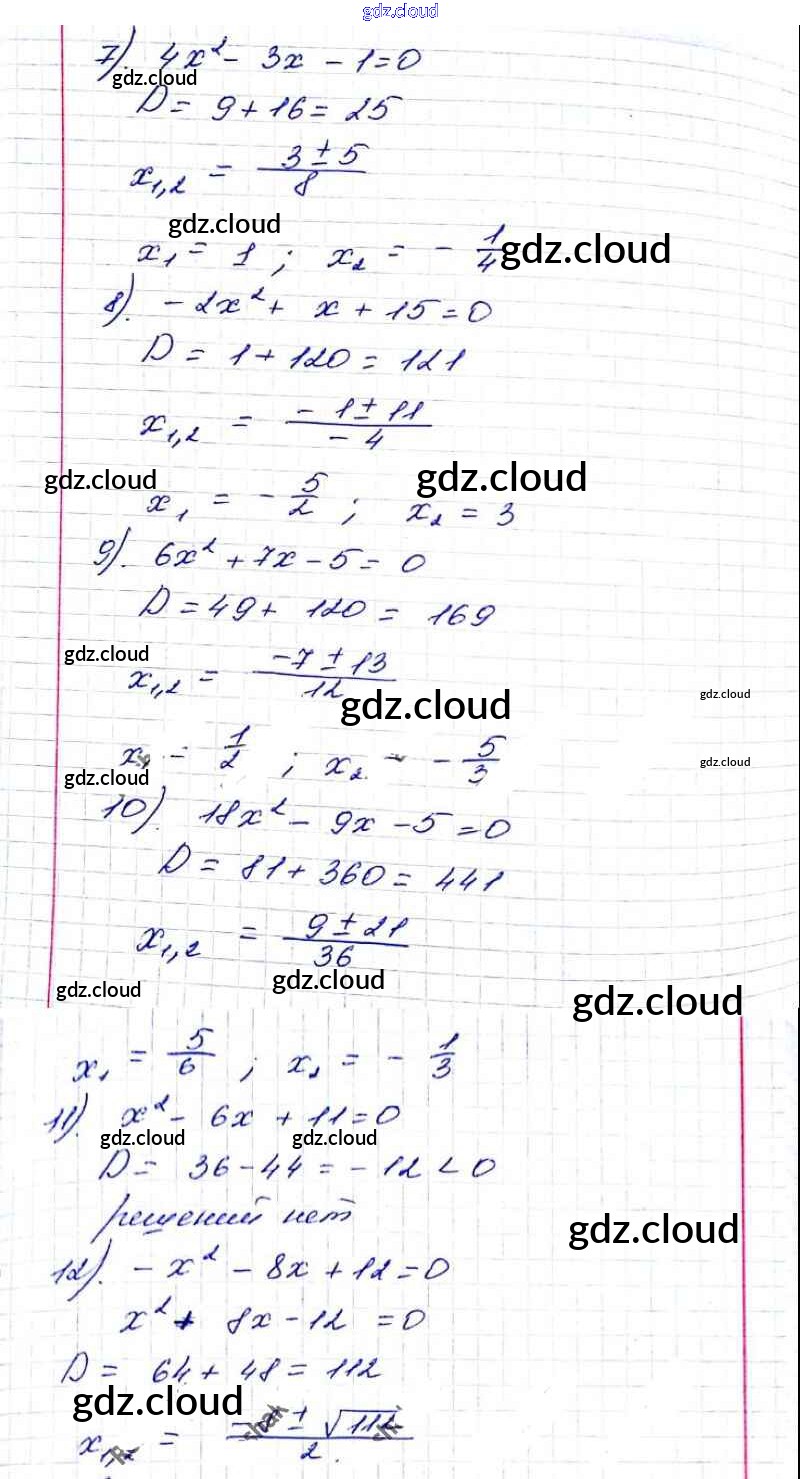 gdz.cloud
7). 4x² - 3x - 1 = 0
gdz.cloud
D = 9 + 16 = 25
x₁,₂ = (3 ± 5)/8
gdz.cloud
x₁ = 1 ; x₂ = - 1/4 gdz.cloud
8). -2x² + x + 15 = 0
D = 1 + 120 = 121
x₁,₂ = (-1 ± 11)/-4
gdz.cloud gdz.cloud
x₁ = - 5/2 ; x₂ = 3
9). 6x² + 7x - 5 = 0
D = 49 + 120 = 169
gdz.cloud
x₁,₂ = (-7 ± 13)/12
gdz.cloud gdz.cloud
x₁ = 1/2 ; x₂ = - 5/3 gdz.cloud
gdz.cloud
10). 18x² - 9x - 5 = 0
D = 81 + 360 = 441
x₁,₂ = (9 ± 21)/36
gdz.cloud gdz.cloud gdz.cloud
x₁ = 5/6 ; x₂ = - 1/3
11). x² - 6x + 11 = 0
gdz.cloud gdz.cloud
D = 36 - 44 = - 12 < 0
решений нет
gdz.cloud
12). -x² - 8x + 12 = 0
x² + 8x - 12 = 0
D = 64 + 48 = 112
gdz.cloud
x₁,₂ = ± √112 / 2